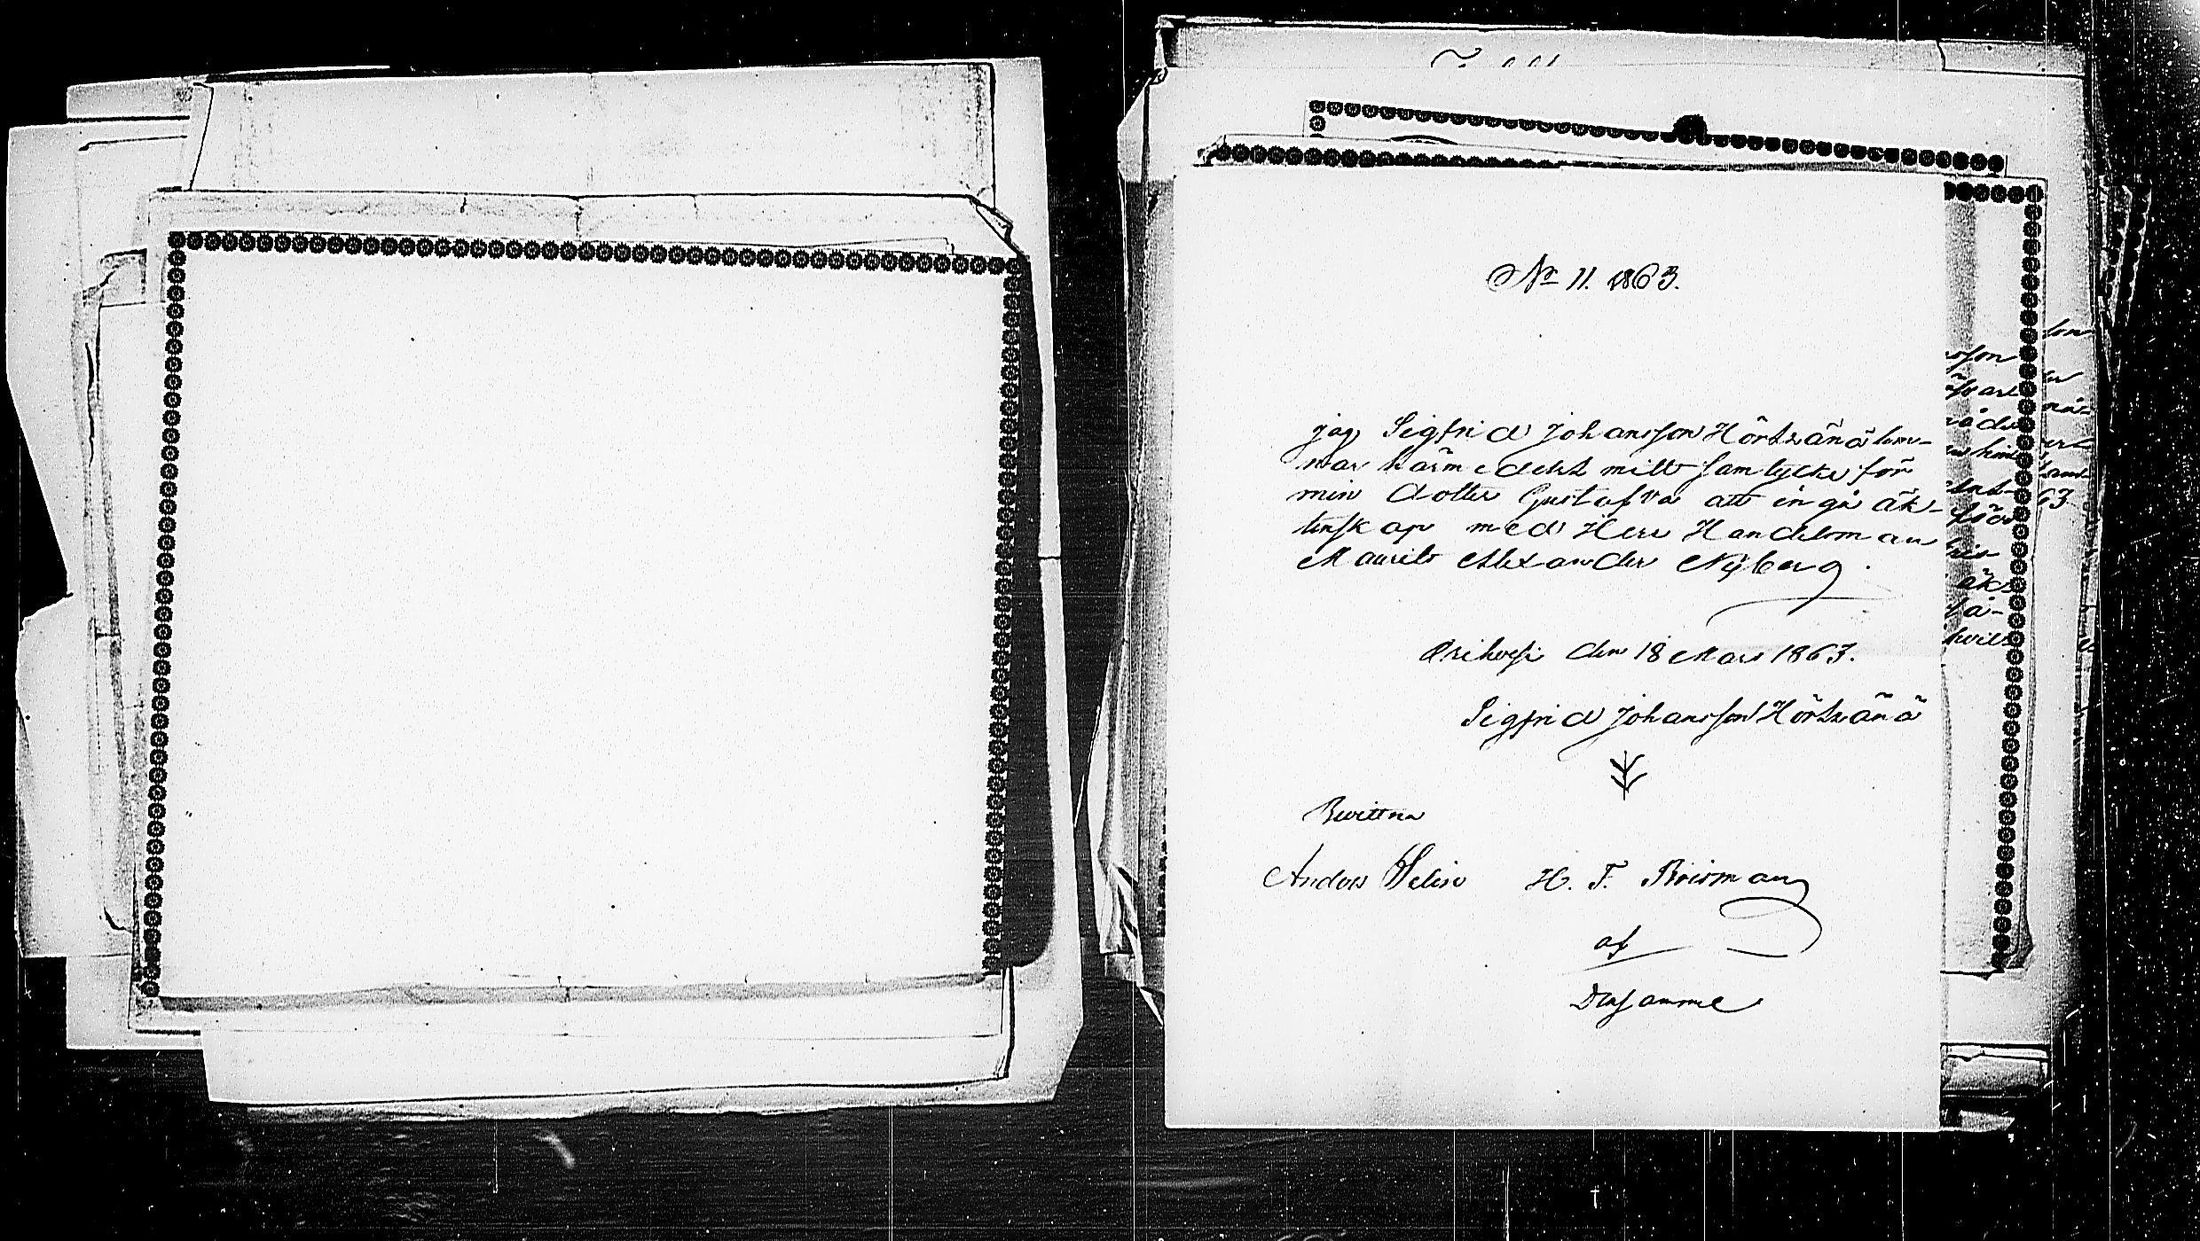 No 11. 1863.
jag Sigfrid Johansson Hörtsänä lem-
nar härmedelst mitt samtycke för
min dotter Gustafva att ingå äk-
tenskap med Herr Handelsman
Maurits Alexander Nyberg.
Orihvesi den 18 Mars 1863.
Sigfrid Johansson Hörtsänä
Bevittna
Anders Helin H. F. Broirman
af
Densamme